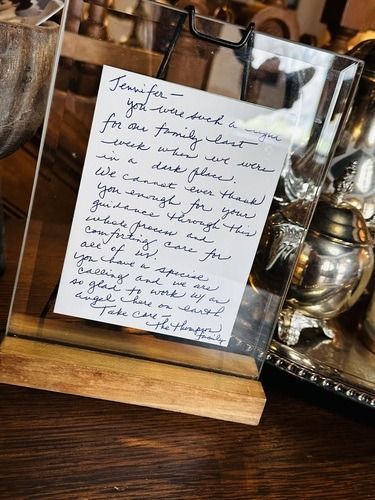 Jennifer—
you were such a
for our family last
week when we were
in a dark place.
We cannot ever thank
you enough for your
guidance through this
whole process and
comforting care for
all of us.
you have a special
calling and we are
so glad to work w/ an
angel here on earth
Take care—
The Thompson
family